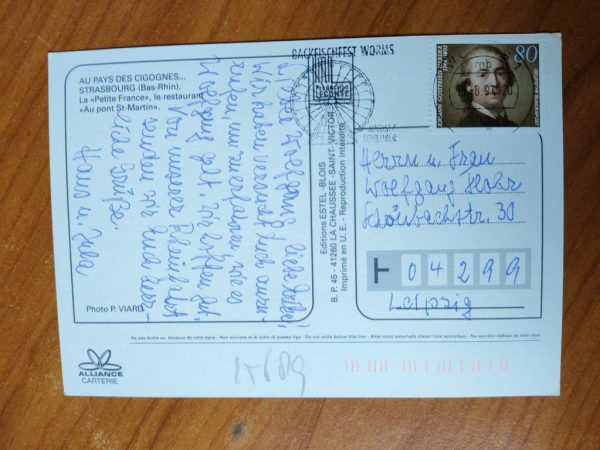 AU PAYS DES CIGOGNES...
STRASBOURG (Bas-Rhin).
La «Petite France», le restaurant
«Au pont St-Martin».
Photo P. VIARD
wir haben versucht Euch anzu-
rufen, um zu erfahren, wie es
Wolfgang geht. Wir hoffen gut,
Von unserer Rheinfahrt
senden wir Euch herz-
liche Grüße.
Hans u.
BACKFISCHFEST WORMS
AUGUST/
SEPTEMBER
80
JOHANN GOTTFRIED HERDER
1744 1803
DEUTSCHE BUNDESPOST
Production
LECONTE
Editions ESTEL -BLOIS
B. P. 45 - 41260 LA CHAUSSEE -SAINT- VICTOR
Imprimé en U. E. - Reproduction interdite
Herrn u. Frau
Wolfgang
30
04299
Leipzig
Ne pas écrire au-dessous de cette ligne - Non scrivere al di sotto di questa riga - Do not write below this line - Bitte nicht unterhalb dieser linie schreiben - No escribir debajo de esta raya
ALLIANCE
CARTERIE